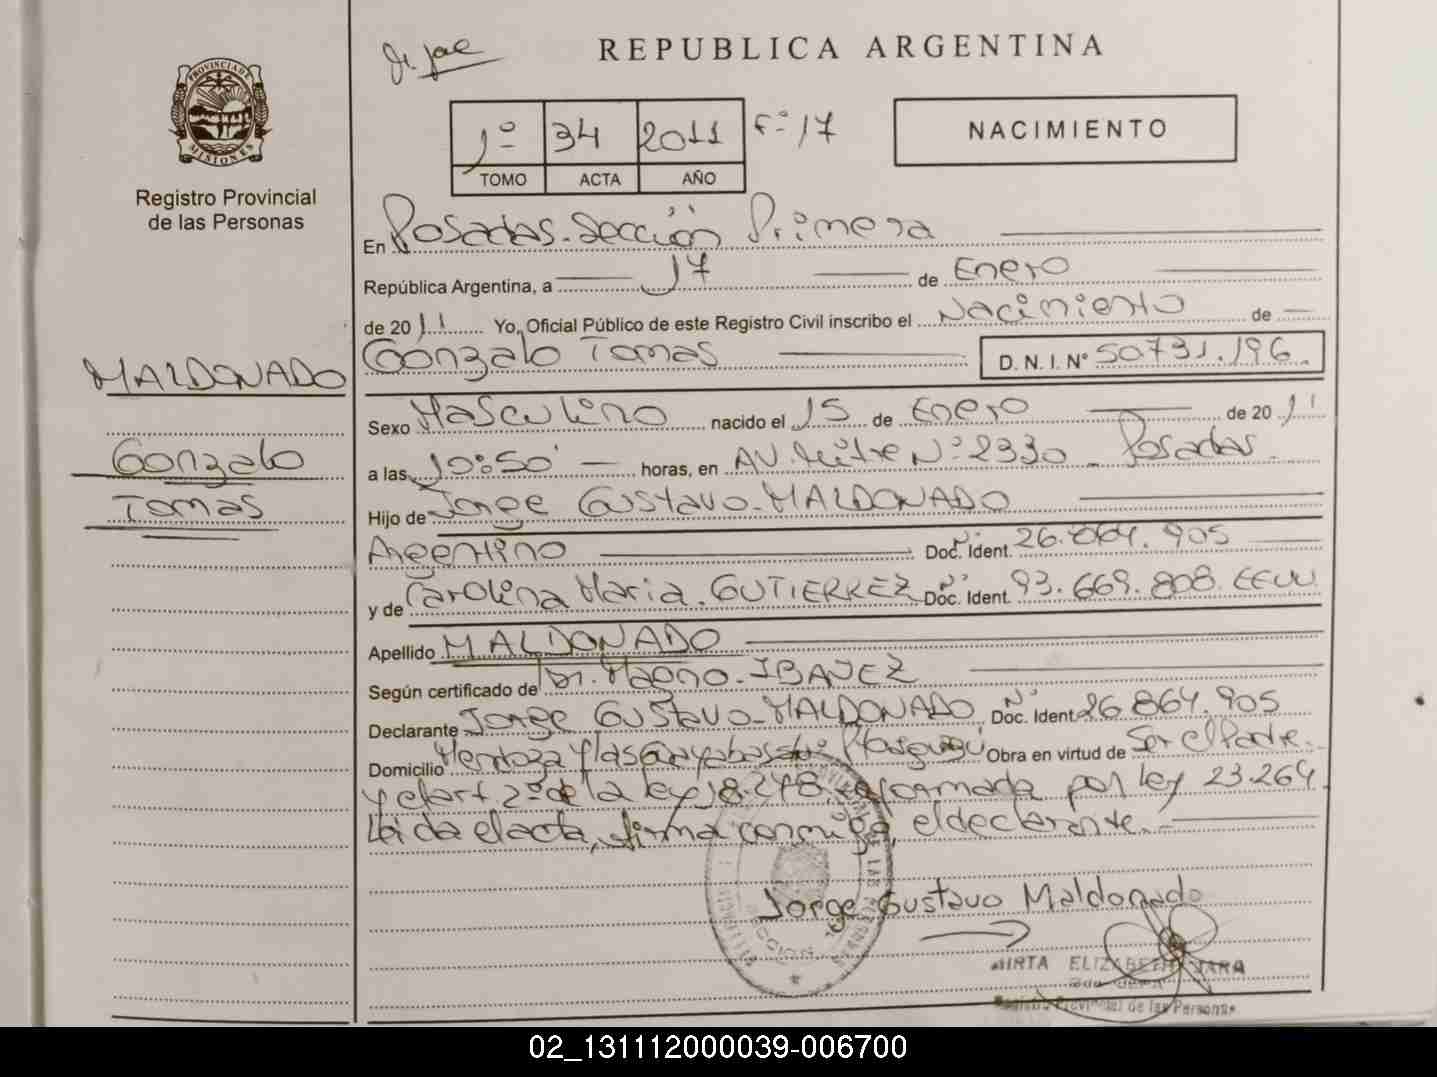 REPUBLICA ARGENTINA
PROVINCIA DE
MISIONES
Registro Provincial
de las Personas
1º 34 2011 Fº 17
TOMO ACTA AÑO
NACIMIENTO
En Posadas. Sección Primera
República Argentina, a 17 de Enero
de 2011 Yo, Oficial Público de este Registro Civil inscribo el Nacimiento de
Gonzalo Tomas D. N. I. Nº 50731.196
MALDONADO
Gonzalo
Tomas
Sexo Masculino nacido el 15 de Enero de 2011
a las 10:50 horas, en AV. Mitre Nº 2330 - Posadas.
Hijo de Jorge Gustavo - MALDONADO
Argentino Doc. Ident. Nº 26.864.905
y de Carolina Maria. GUTIERREZ Doc. Ident. Nº 93.669.808. EEUU
Apellido MALDONADO
Según certificado de Dr. Magno. IBAÑEZ
Declarante Jorge Gustavo - MALDONADO Doc. Ident. Nº 26.864.905
Domicilio Mendoza y las Obra en virtud de Ser el Padre.
y el art 2º de la ley 18.248. reformada por ley 23.264.
Leida el acta, firma conmigo, el declarante.-
Jorge Gustavo Maldonado
MIRTA ELIZABETH JARA
Registro Provincial de las Personas
02_131112000039-006700